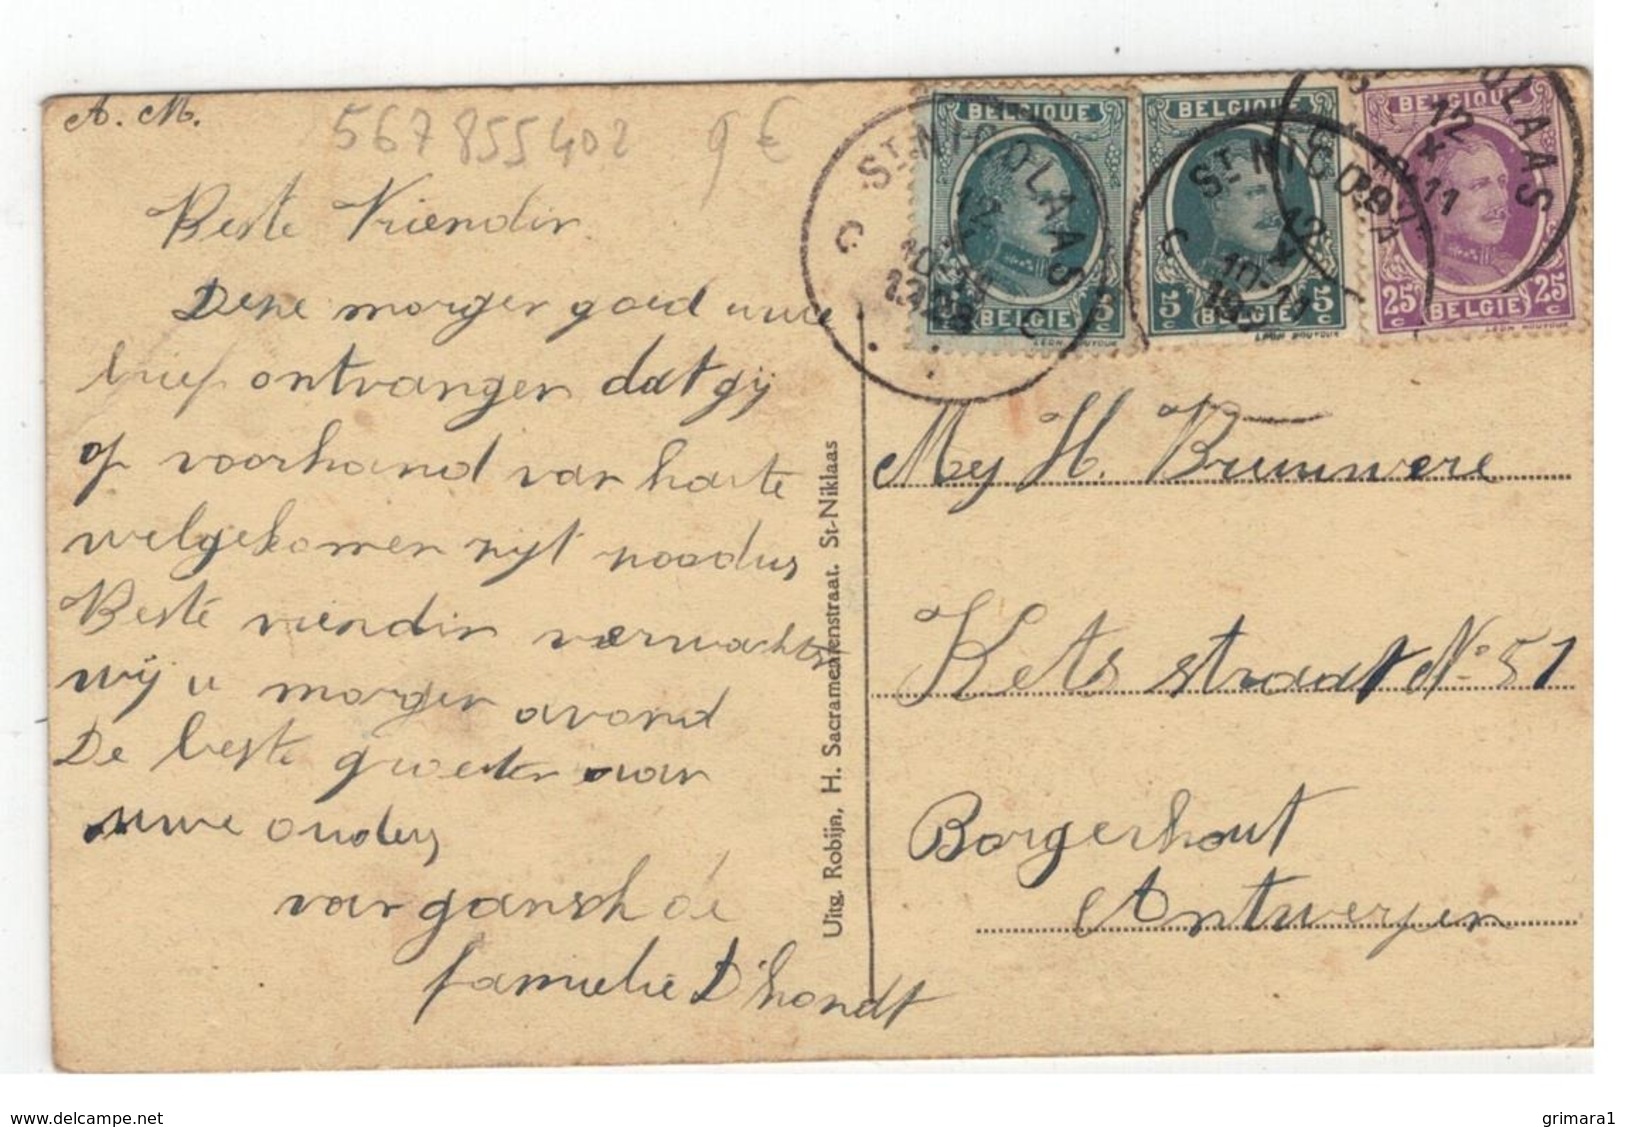 A. M.
567 855 402 9 €
Beste Vriendin.
Deze morgen goed uwe
brief ontvangen dat gij
op voorhand van harte
welgekomen zijt noodus
Beste vriendin verwachten
wij u morgen avond
De beste groeten van
uwe ouders
van gansch de
familie D'hondt
Uitg. Robijn, H. Sacramentenstraat. St-Niklaas
BELGIQUE
5 c BELGIE 5 c
LEON HOUYOUX
BELGIQUE
5 c BELGIE 5 c
LEON HOUYOUX
BELGIQUE
25 c BELGIE 25 c
LEON HOUYOUX
ST NICOLAAS
C 12 X 10-11 C
ST NICOLAAS
C 12 X 10-11 C
OLAAS
12 X 11
Mej H.
Kets straat No 51
Borgerhout
Antwerpen
www.delcampe.net
grimara1